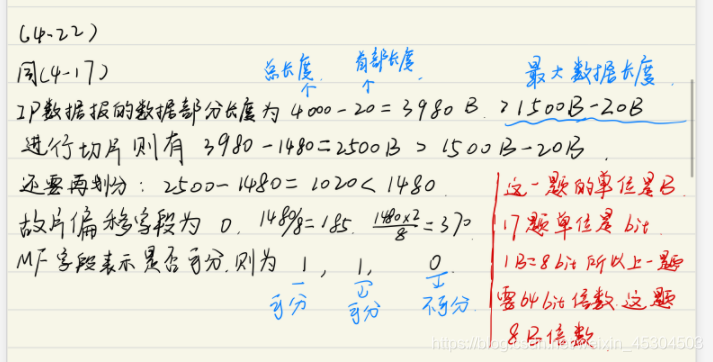 (4-22)
同(4-17)
总长度 首部长度 最大数据长度
IP数据报的数据部分长度为 4000-20=3980 B. >1500B-20B
进行切片则有 3980-1480=2500B > 1500B-20B.
还要再划分: 2500-1480=1020<1480.
故片偏移字段为 0. 1480/8=185. 1480×2/8=370
MF字段表示是否可分,则为 1, 1, 0.
可分 可分 不可分.
这一题的单位是B
17题单位是bit.
1B=8bit 所以上一题
需64bit倍数.这题
8B倍数.
https://blog.csdn.net/weixin_45304503